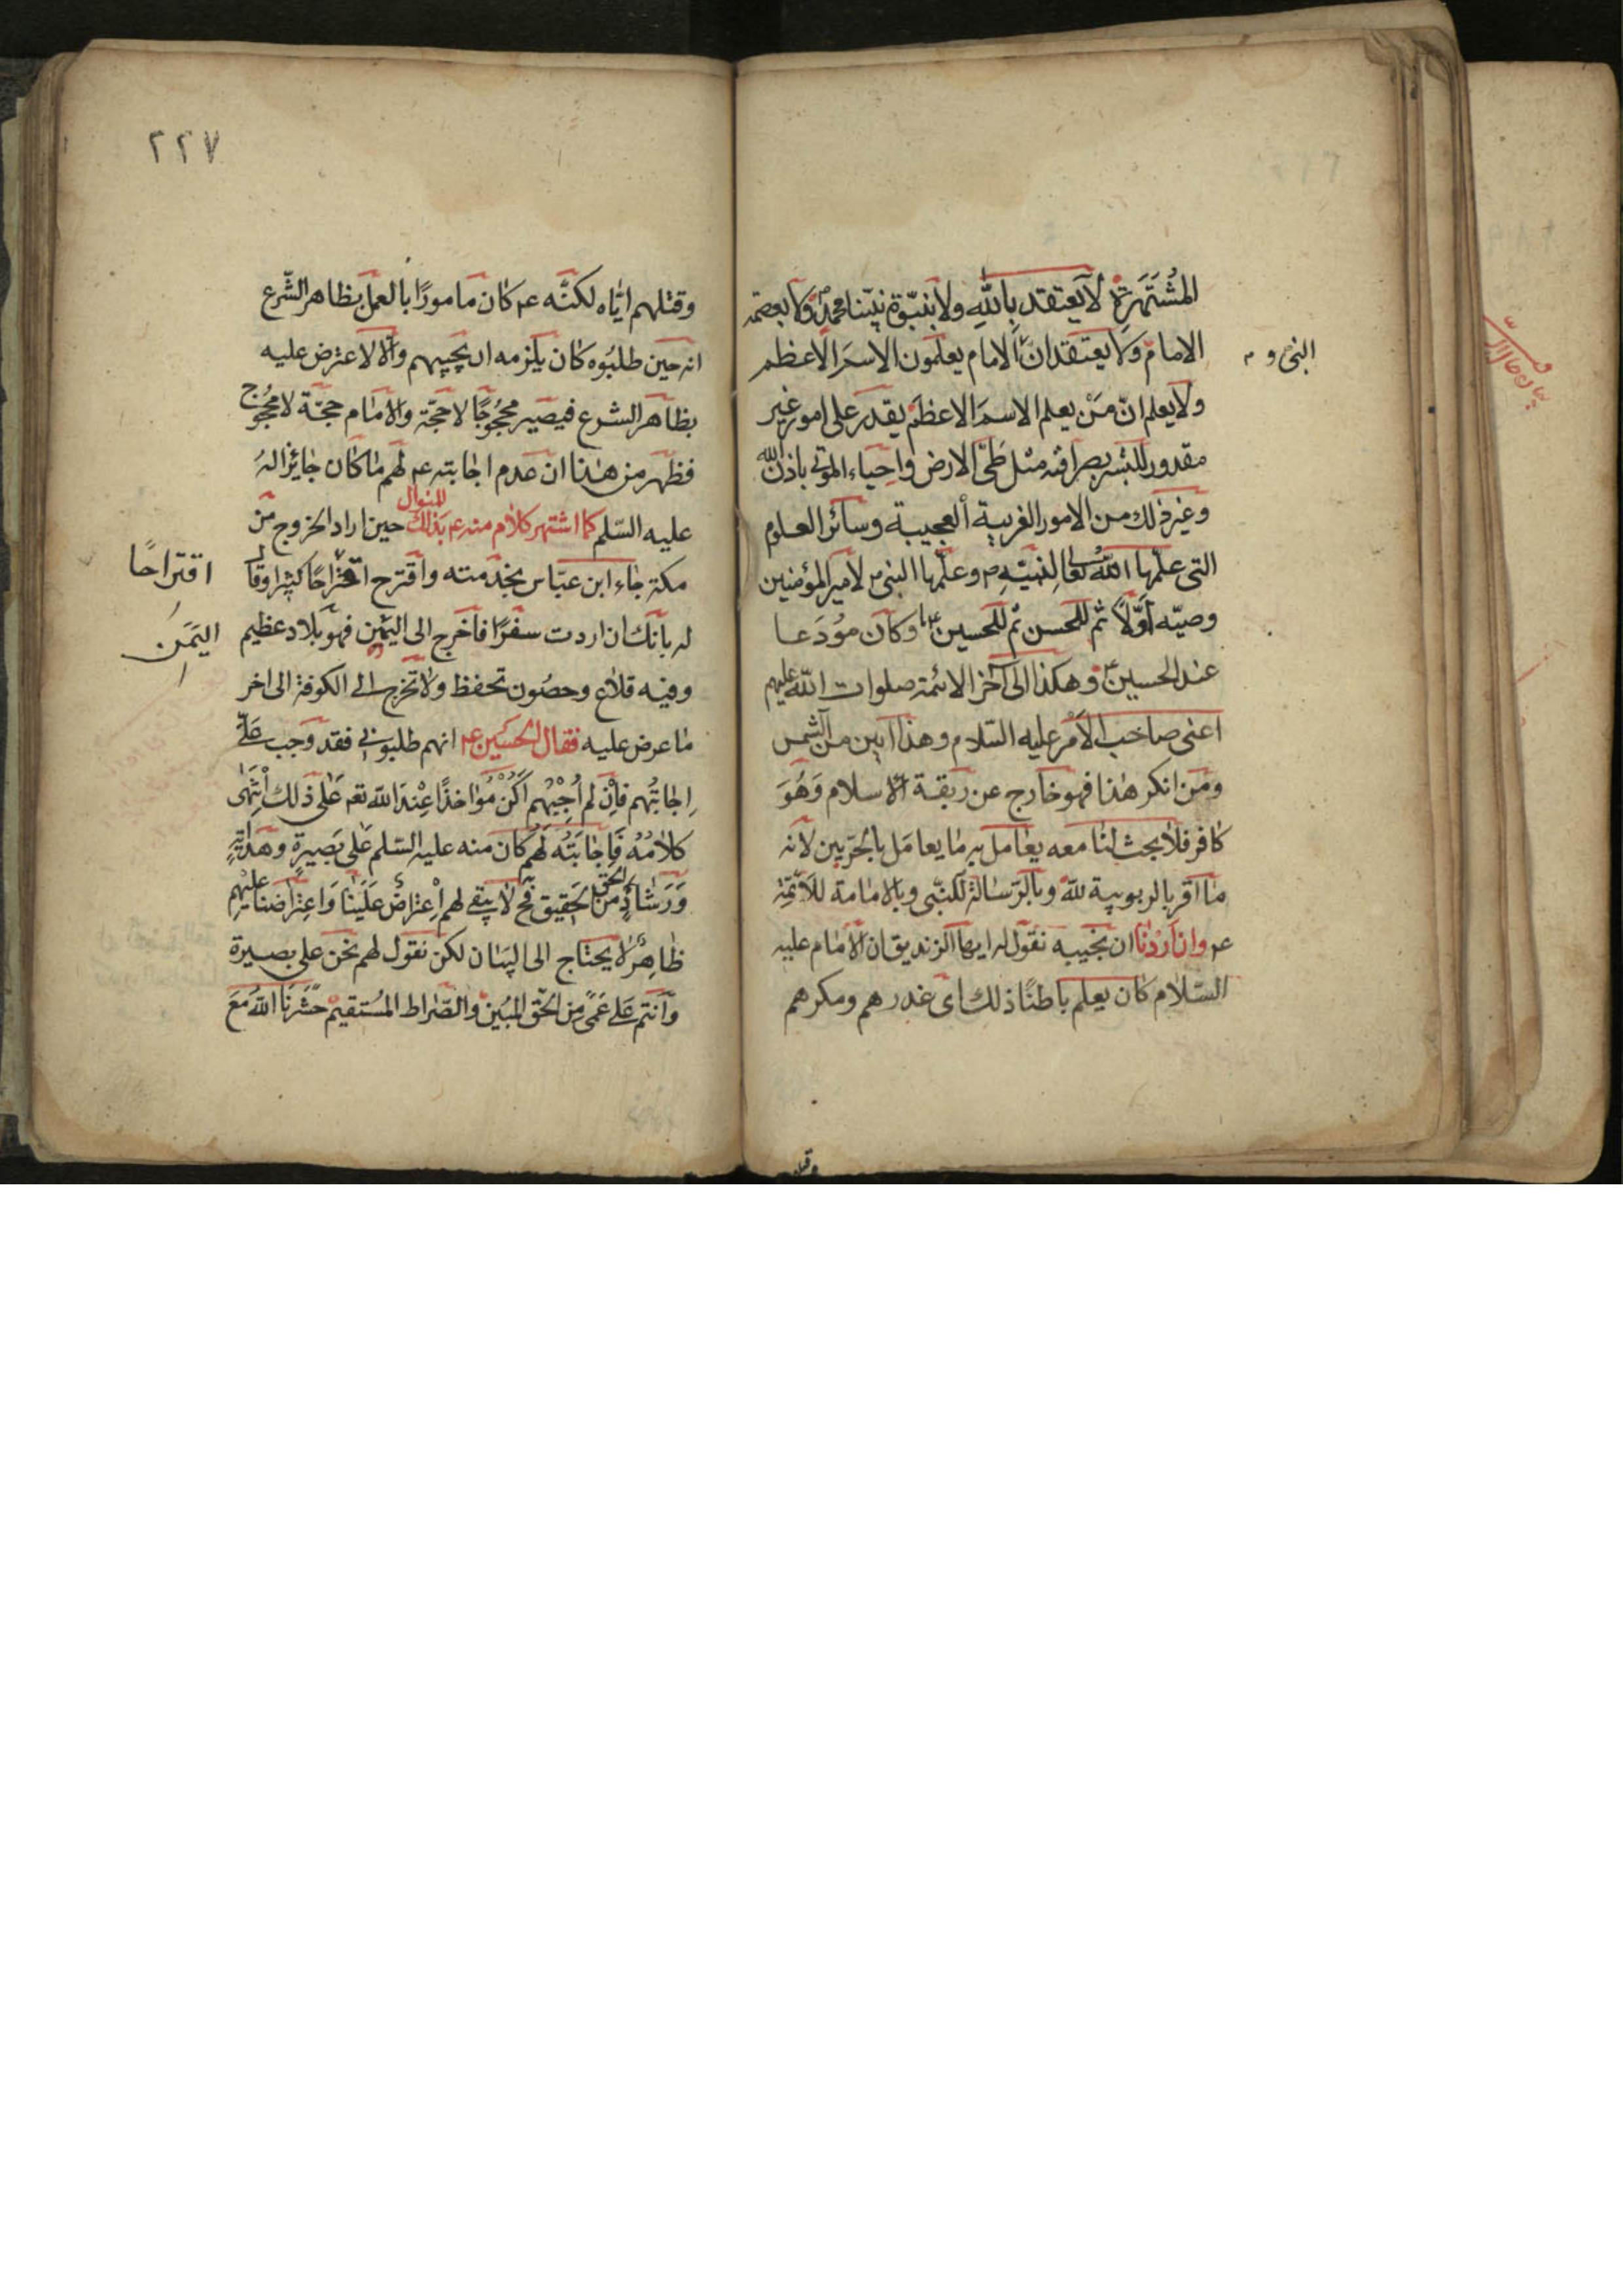 المُشْتَهَرة لا يعتقد بِاللهِ ولا بنبّوة نبيّنا محمدٍ ص ولا بعصمة
الامام ولا يعتقد انّ الامام يعلمون الاسم الاعظم
النبي و
ولا يعلم انّ مَنْ يعلم الاسمَ الاعظم يقدر على امور غير
مقدور للبشر بصرافته مثل طَىّ الارض واحياء الموتى باذن الله
وغير ذلك من الامور الغريبة العجيبة وسائر العلوم
التى علّمها الله تعا لنبيّه ص وعلّمها النبى ص لامير المؤمنين
وصيّه اَوّلًا ثم للحسن ثم للحسين ع وكان مُودَعا
عند الحسين ع وهكذا الى آخر الائمة صلوات الله عليهم
اعنى صاحب الاَمْر عليه السّلام وهذا ابين من الشمس
ومَن انكر هٰذا فهو خارج عن ربقة الاسلام وَهُوَ
كافر فلا بحث لنا معه يعامل به ما يعامَل بالحَربيين لانه
ما اقر بالربوبية للهّ وبالرّسالة للنّبى وبالامامة للاَئمّة
ع وان اردْنا ان نجيبه نقول له ايها الزنديق ان الامام عليه
السّلام كان يعلم باطنًا ذلك اى غدرهم ومكرهم
وقتلهم
٢٢٧
وقتلهم ايّاه لكنّه ع كان مامورًا بالعمل بظاهر الشّرع
انه حين طلبُوه كان يلزمه ان يجيبهم والّا لاعترض عليه
بظاهر الشرع فيصير محجُوجًا لا حجّة والامام حجّة لا محجُوج
فظهر من هذا ان عدم اجابته ع لهم ما كان جائزا لهُ
عليه السّلم كما اشتهر كلام منه ع بذلك المنوال حين اراد الخروج من
مكة جاء ابن عبّاس بخدمته واقترح اقتراحًا كثيرا وقال
اقتراحًا
له بانّك ان اردت سفرًا فاخرج الى اليمن فهو بلاد عظيم
اليَمَن
وفيه قلاع وحصُون تحفظ ولا تخرج الى الكوفة الى اخر
ما عرض عليه فقال الحسَين ع انهم طلبونى فقد وجب عَلىّ
اِجابتُهم فاِن لم اُجِبْهُم اَكُنْ مُواخذًا عِنْدَ الله تعه عَلى ذلك اِنْتَهى
كلامُهُ فَاِجابَتُه لَهُم كان منه عليه السّلم عَلى بَصيرةٍ وهَدايةٍ
وَرَشادٍ من الحق الحَقيق فح لا يبقى لهم اِعْتراض عَلَينا وَاعتراضنا عليهم
ظاهرٌ لا يحتاج الى البَيان لكن نقول لهم نحن على بصيرة
وَاَنتم عَلى عَمًى مِن الحَقّ المُبين والصّراط المُستقيم حشَرنَا الله مَعَ